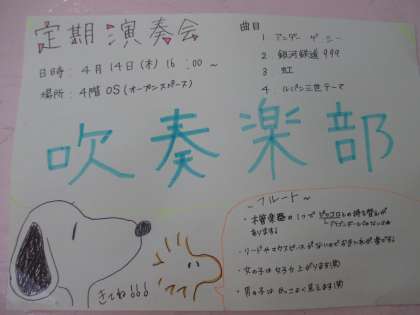 定期演奏会
日時：4月14日(木)16:00～
場所：4階OS(オープンスペース)
曲目
1 アンダー ザ シー
2 銀河鉄道999
3 虹
4 ルパン三世テーマ
吹奏楽部
～フルート～
・木管楽器の1つで ピッコロとの持ち替えが
あります
・リードやマウスピースがないのでお手入れが楽です
・女の子は女子力上がります(笑)
・男の子はかっこよく見えます(笑)
きてね